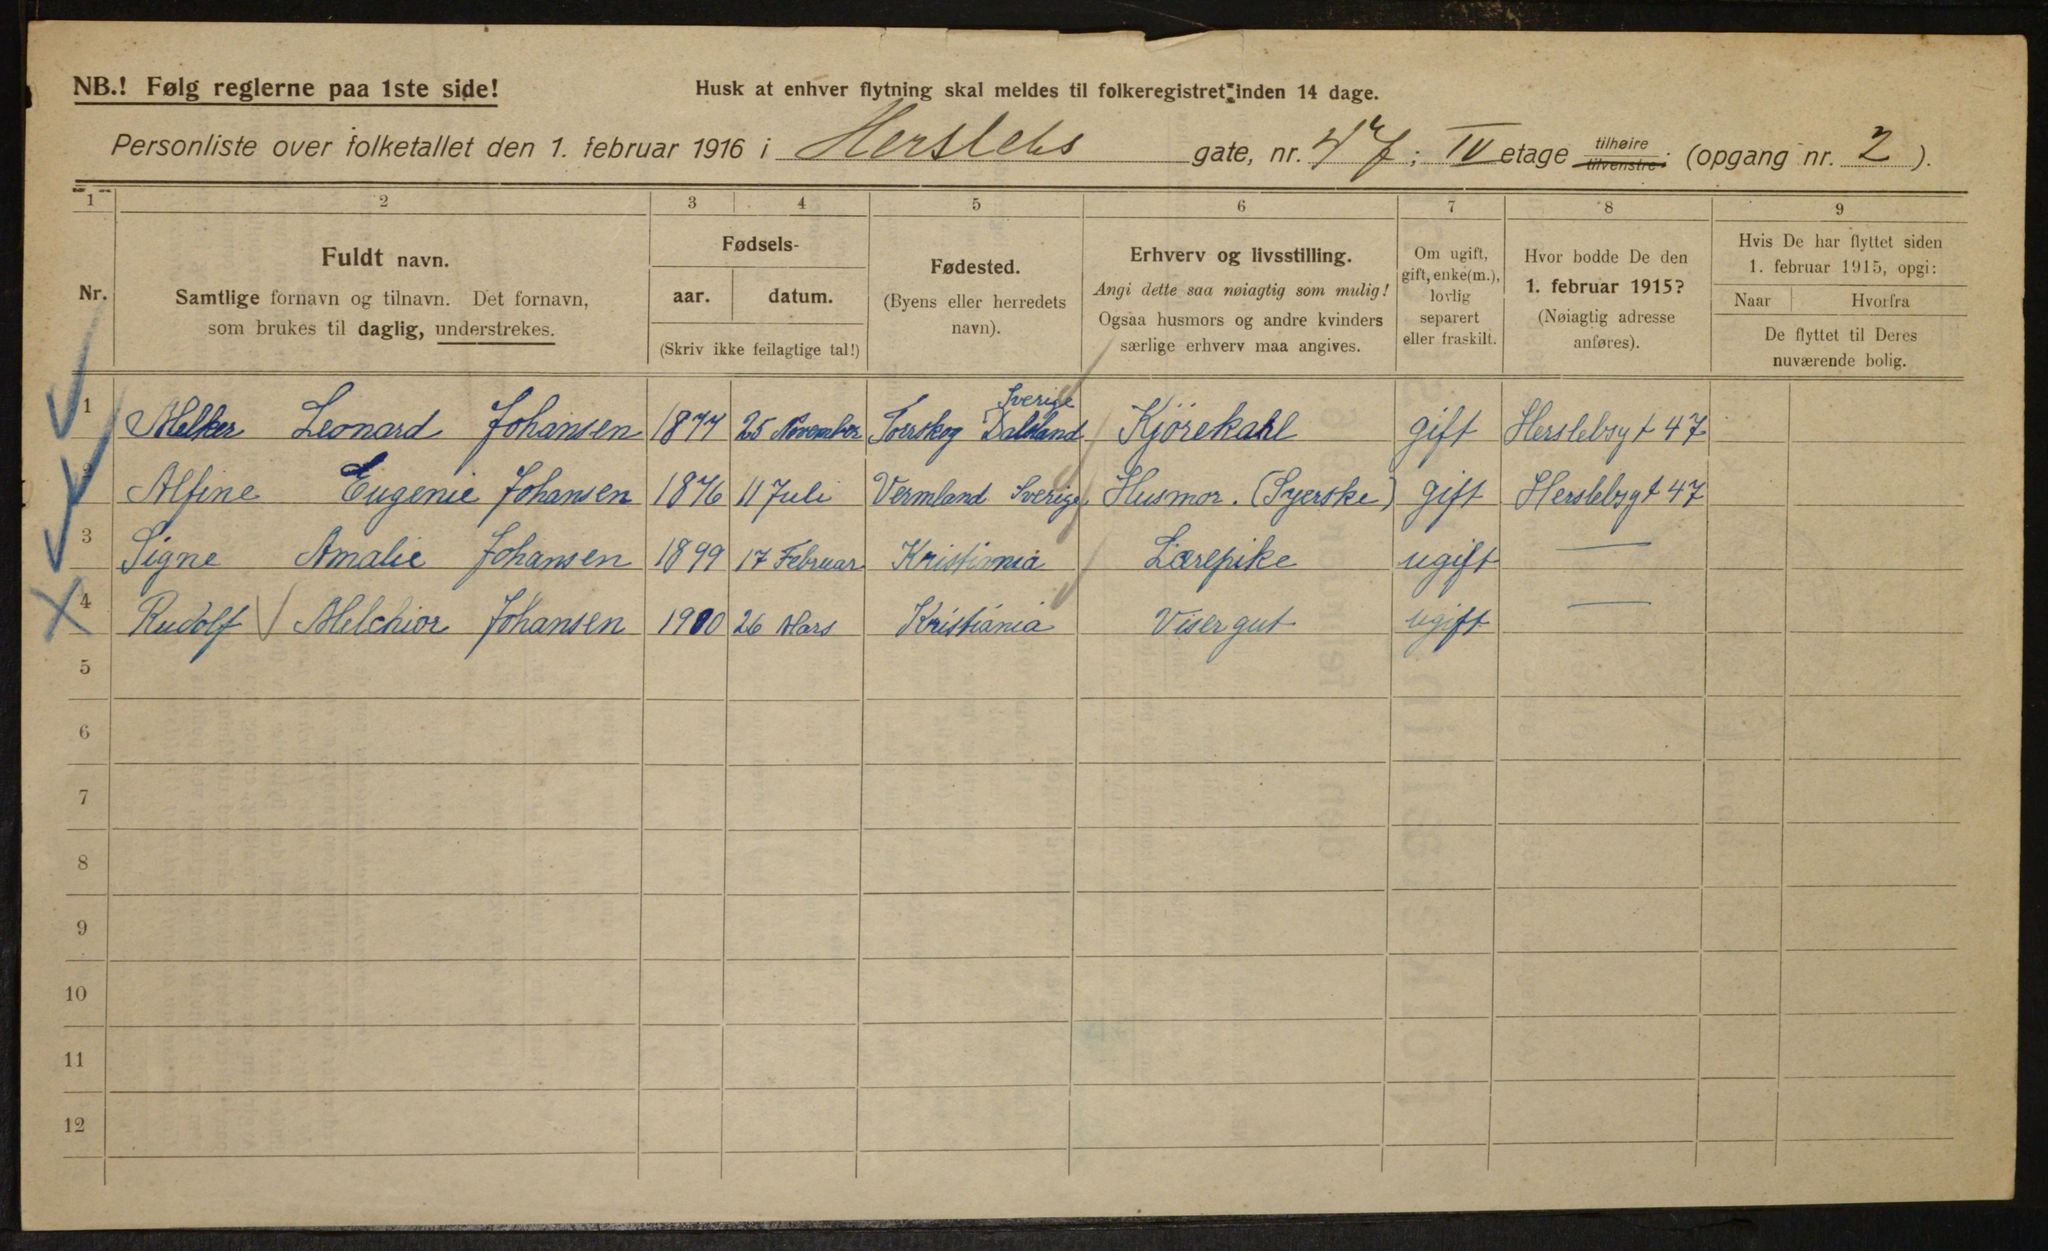 NB.! Følg reglerne paa 1ste side!
Husk at enhver flytning skal meldes til folkeregistret inden 14 dage.
Personliste over folketallet den 1. februar 1916 i Herslebs gate, nr. 47; IV etage tilhøire tilvenstre. (opgang nr. 2).
1 2 3 4 5 6 7 8 9
Nr.
Fuldt navn.
Samtlige fornavn og tilnavn. Det fornavn,
som brukes til daglig, understrekes.
Fødsels-
aar. datum.
(Skriv ikke feilagtige tal!)
Fødested.
(Byens eller herredets
navn).
Erhverv og livsstilling.
Angi dette saa nøiagtig som mulig!
Ogsaa husmors og andre kvinders
særlige erhverv maa angives.
Om ugift,
gift, enke(m.),
lovlig
separert
eller fraskilt.
Hvor bodde De den
1. februar 1915?
(Nøiagtig adresse
anføres).
Hvis De har flyttet siden
1. februar 1915, opgi:
Naar Hvorfra
De flyttet til Deres
nuværende bolig.
1 Melker Leonard Johansen 1877 25 November Torskog Dalsland Sverige Kjörekahl gift Herslebsgt 47
2 Alfine Eugenie Johansen 1876 11 Juli Vermland Sverige Husmor. (Syerske) gift Herslebsgt 47
3 Signe Amalie Johansen 1899 17 Februar Kristiania Lærepike ugift —
4 Rudolf Melchior Johansen 1900 26 Mars Kristiania Visergut ugift —
5
6
7
8
9
10
11
12